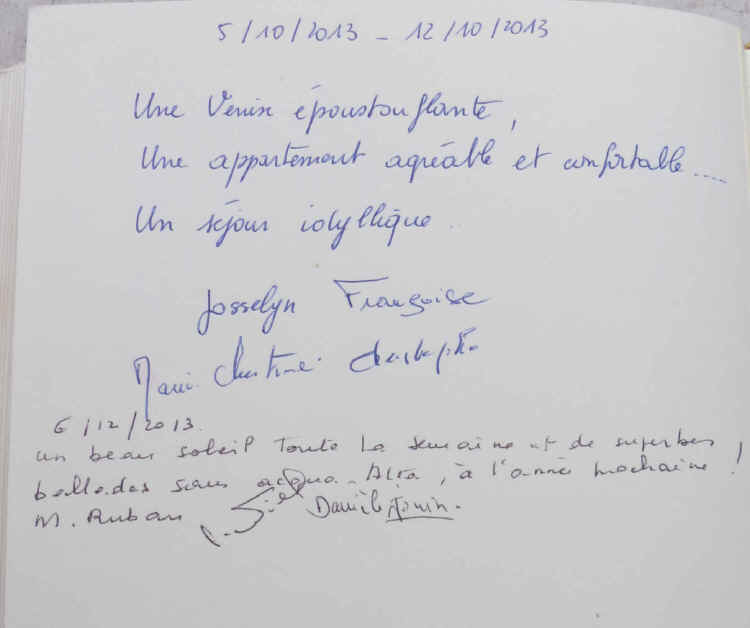 5/10/2013 - 12/10/2013
Une Venise époustouflante,
Une appartement agréable et confortable....
Un séjour idyllique..
Josselyn Françoise
Marie-Christine
6/12/2013.
un beau soleil toute la semaine et de superbes
ballades sans acqua-Alta, à l'année prochaine !
M. Ruban Daniel